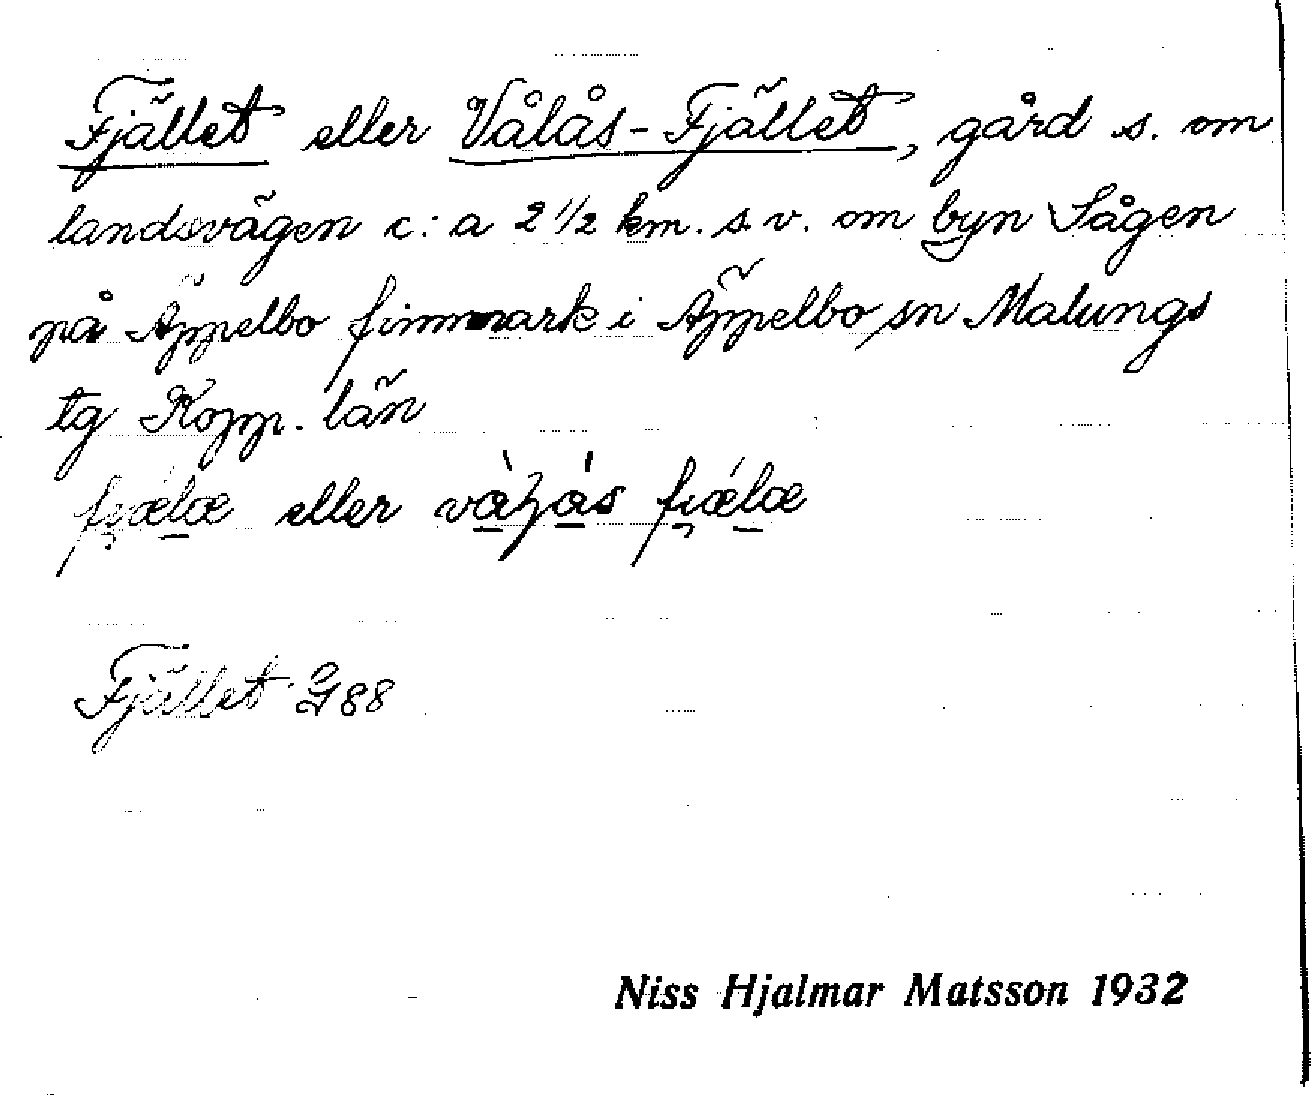 Fjället eller Vålås-Fjället, gård s. om
landsvägen c:a 2 1/2 km. s.v. om byn Sågen
på Äppelbo finnmark i Äppelbo sn Malungs
tg Kopp. län
eller
Fjället G88
Niss Hjalmar Matsson 1932